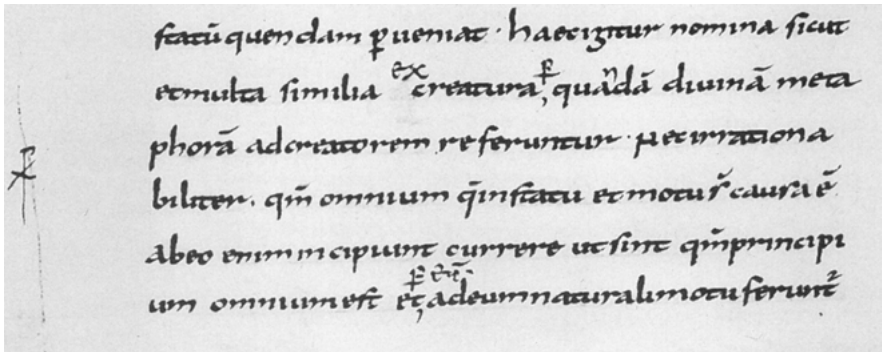 statū quendam ꝑueniat · haec igitur nomina sicut
et multa similia ex creatura ꝑ quādā diuinā meta
phorā ad creatorem referuntur · Nec irrationa
biliter · qm̄ omnium q̄ in statu et motu s̄ causa ē
ab eo enim incipiunt currere ut sint qm̄ principi
um omnium est et ꝑ eū ad eum naturali motu ferunt᷑